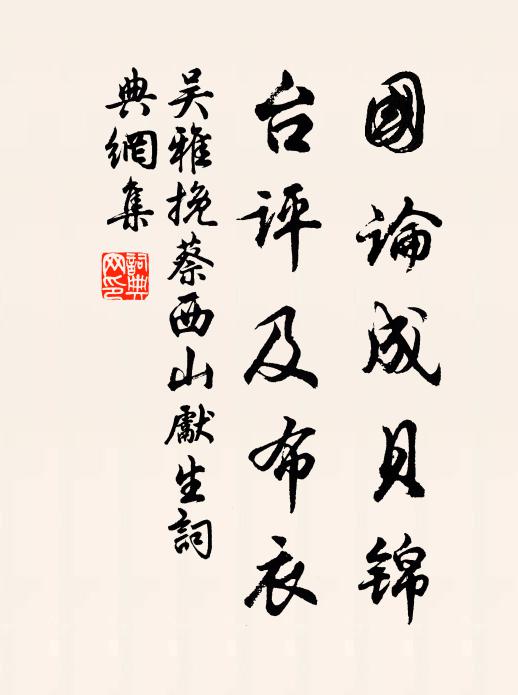 國論成貝錦
台評及布衣
吴雅挽蔡西山獻生詞
典網集
詞典
网印